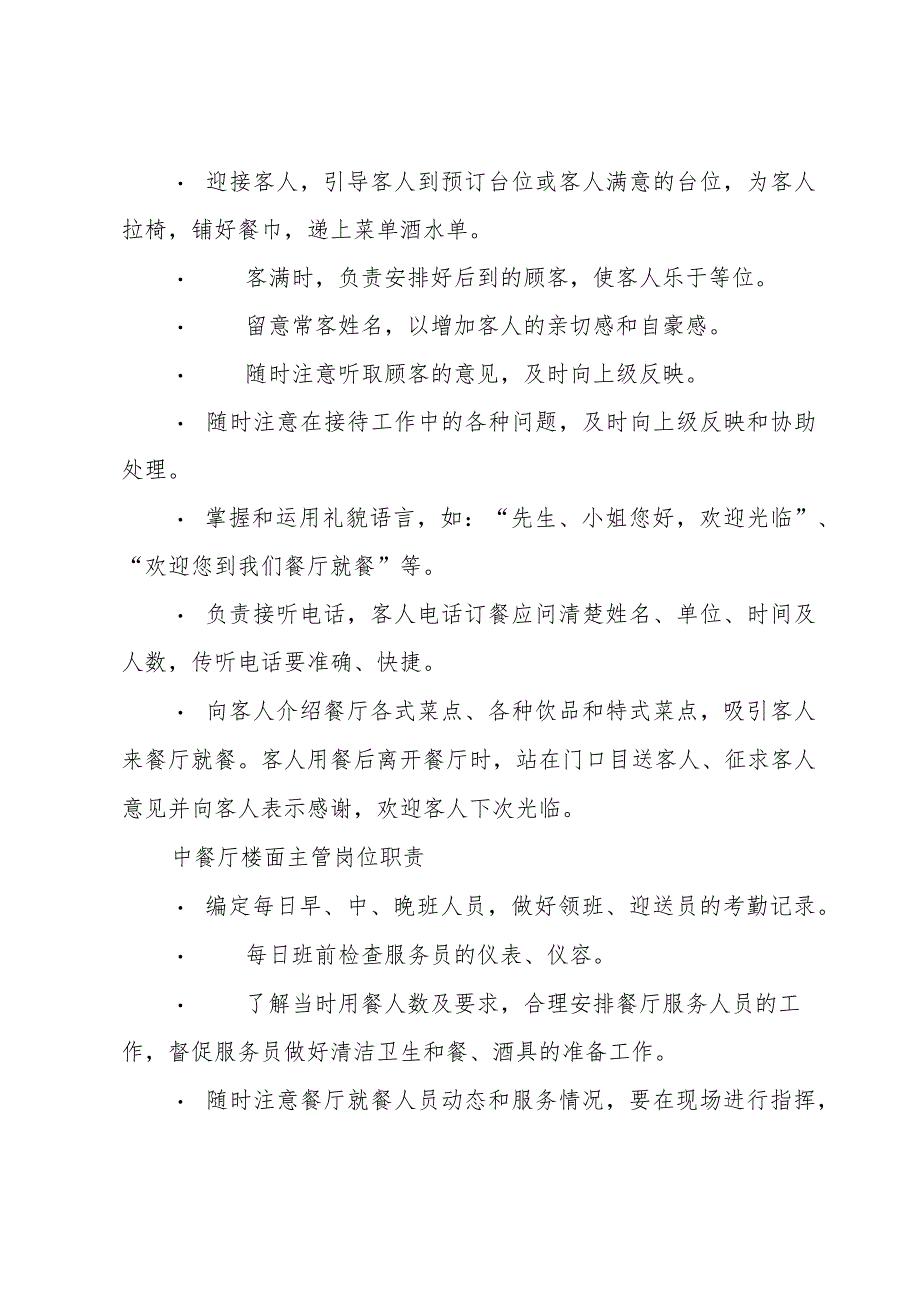 · 迎接客人，引导客人到预订台位或客人满意的台位，为客人
拉椅，铺好餐巾，递上菜单酒水单。
· 客满时，负责安排好后到的顾客，使客人乐于等位。
· 留意常客姓名，以增加客人的亲切感和自豪感。
· 随时注意听取顾客的意见，及时向上级反映。
· 随时注意在接待工作中的各种问题，及时向上级反映和协助
处理。
· 掌握和运用礼貌语言，如：“先生、小姐您好，欢迎光临”、
“欢迎您到我们餐厅就餐”等。
· 负责接听电话，客人电话订餐应问清楚姓名、单位、时间及
人数，传听电话要准确、快捷。
· 向客人介绍餐厅各式菜点、各种饮品和特式菜点，吸引客人
来餐厅就餐。客人用餐后离开餐厅时，站在门口目送客人、征求客人
意见并向客人表示感谢，欢迎客人下次光临。
中餐厅楼面主管岗位职责
· 编定每日早、中、晚班人员，做好领班、迎送员的考勤记录。
· 每日班前检查服务员的仪表、仪容。
· 了解当时用餐人数及要求，合理安排餐厅服务人员的工
作，督促服务员做好清洁卫生和餐、酒具的准备工作。
· 随时注意餐厅就餐人员动态和服务情况，要在现场进行指挥，